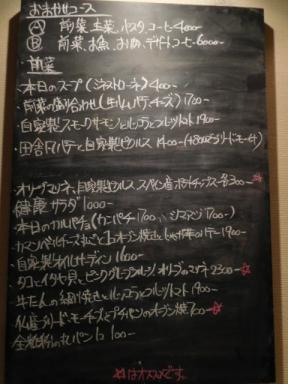 おまかせコース
Ⓐ 前菜、主菜、パスタ、コーヒー 4000-
Ⓑ 前菜、お魚、お肉、デザート コーヒー 6000-
前菜
本日のスープ(ミネストローネ) 400-
前菜の盛り合わせ(生ハム、パテ、チーズ) 1700-
自家製スモークサーモンとルッコラとフルーツトマト 1900-
田舎風パテと自家製ピクルス 1400-
オリーブマリネ、自家製ピクルス スペイン産ポテトチップス 各300-☆
健康サラダ 1000-
本日のカルパッチョ(カンパチ 1700
カマンベールチーズ オーブン焼き 1900-
自家製オイルサーディン 1600-
タコとイタヤ貝とピンクグレープフルーツ、オリーブのマリネ 2300-☆
牛たんの網焼きとルッコラとフルーツトマト 1900-
ブリードモーチーズとプチパンのオーブン焼 700-☆
全粒粉の丸パン 1コ 100-
☆はオススメです。